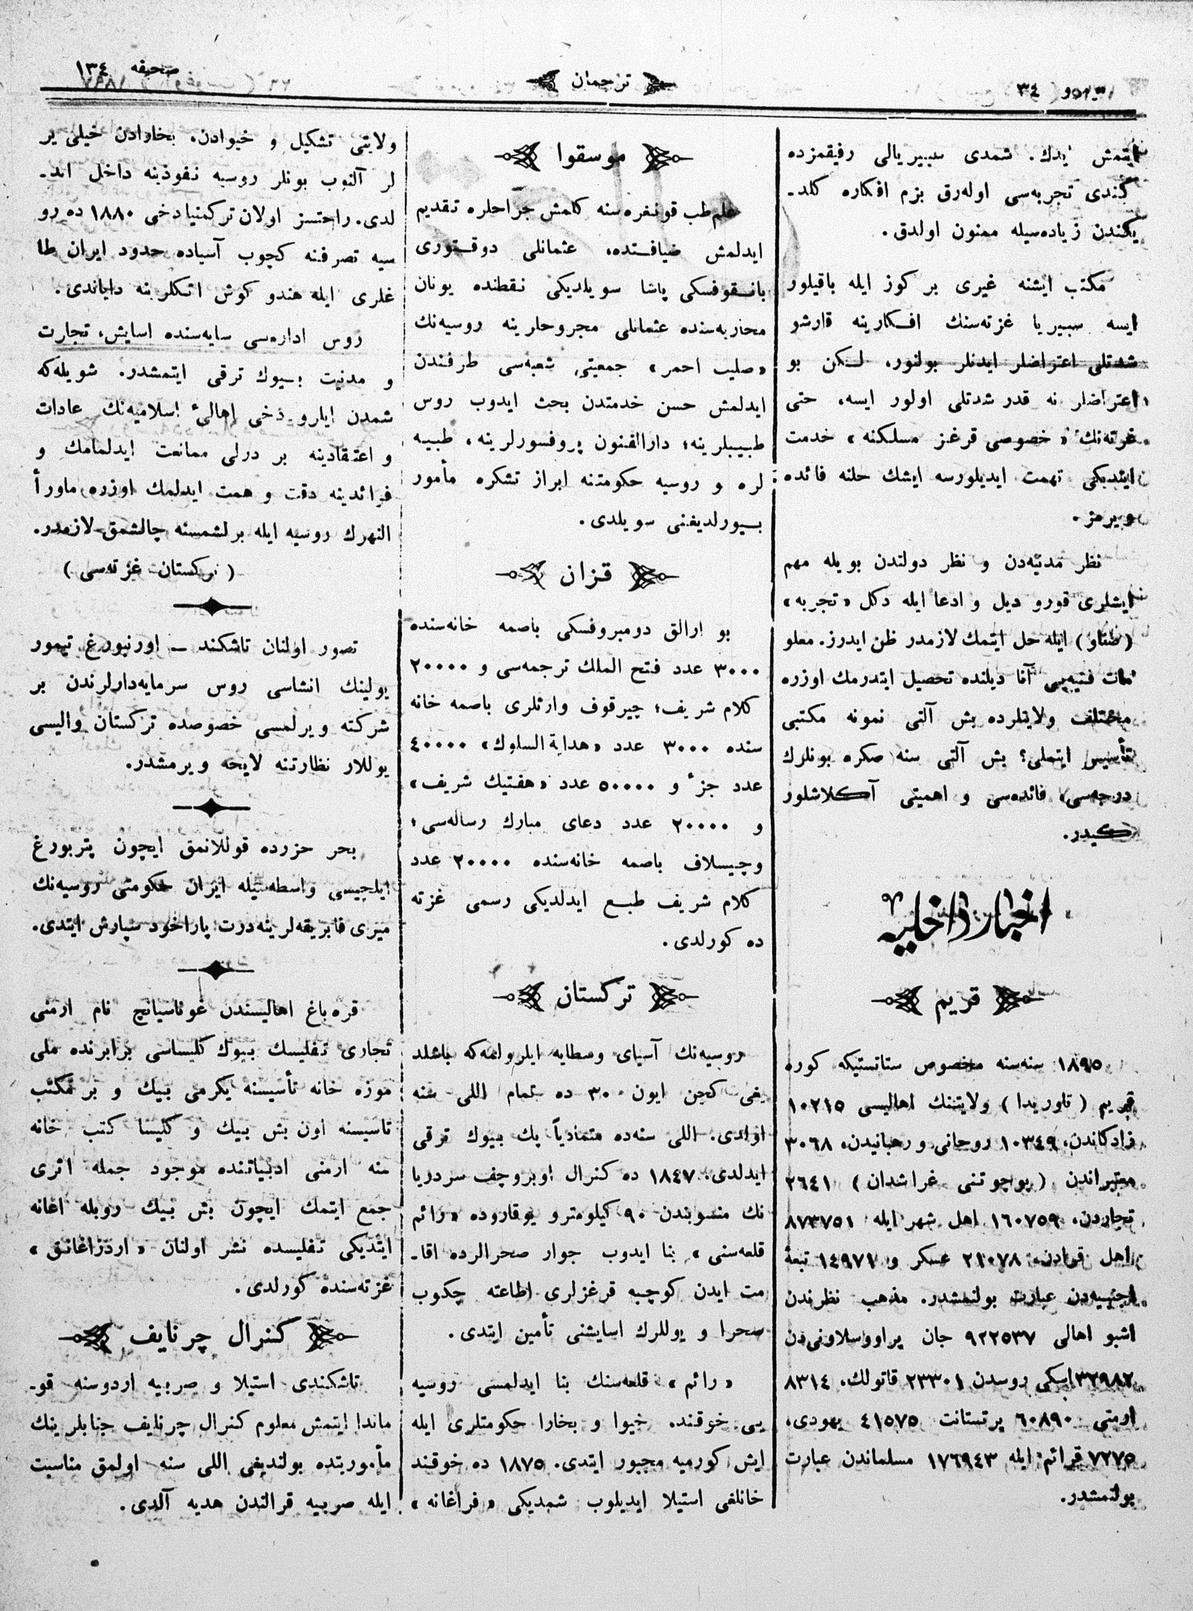 نومرو ٣٤
ترجمان
صحیفه ١٣٤
ایتمش ایدك. شمدی سبیریالی رفیقمزده
كندی تجربه‌سی اوله‌رق بزم افكاره كلد-
یكندن زیاده‌سیله ممنون اولدق.
مكتب ایشنه غیری بر كوز ایله باقیلور
ایسه سبیریا غزته‌سنك افكارینه قارشو
شدتلی اعتراضلر ایدنلر بولنور، لكن بو
اعتراضلر نه قدر شدتلی اولور ایسه، حتی
غزته‌نك « خصوصی قرغز مسلكنه » خدمت
ایتدیكی تهمت ایدیلورسه ایشك حلنه فائده
ویرمز.
نظر مدنیه‌دن و نظر دولتدن بویله مهم
ایشلری قورو دیل و ادعا ایله دكل « تجربه »
ایله حل ایتمك لازمدر ظن ایدرز. معلو
مات فنیه‌یی آنا دیلنده تحصیل ایتدرمك اوزره
مختلف ولایتلرده بش آلتی نمونه مكتبی
تأسیس ایتملی؟ بش آلتی سنه صكره بونلرك
درجه‌سی، فائده‌سی و اهمیتی آكلاشلور
كیدر.
اخبار داخلیه
قریم
١٨٩٥ سنه‌سنه مخصوص ستاتستیكه كوره
قریم ( تاوریدا ) ولایتنك اهالیسی ١٠٢١٥
زادكاندن، ١٠٣٤٩ روحانی و رهبانیدن، ٣٠٦٨
معتبراندن ( پوچوتنی غراشدان ) ٢٦٤١
تجاردن، ١٦٠٧٥٩ اهل شهر ایله ٨٧٣٧٥١
اهل قرادن، ٢١٠٧٨ عسكر و ١٤٩٧١ تبعهٔ
اجنبیه‌دن عبارت بولنمشدر. مذهب نظرندن
اشبو اهالی ٩٢٢٥٣٧ جان پراووسلاونی‌دن
٣٢٩٨٢ اسكی روسدن ٢٣٣٠١ قاتولك، ٨٣١٤
ارمنی ٦٠٨٩٠ پرتستانت ٤١٥٧٥ یهودی،
٧٢٧٥ قرائم ایله ١٧٦٩٤٣ مسلماندن عبارت
بولنمشدر.
موسقوا
علم طب قونغره‌سنه كلمش جراحلره تقدیم
ایدلمش ضیافتده، عثمانلی دوقتوری
بانقوفسكی پاشا سویلدیكی نقطنده یونان
محاربه‌سنده عثمانلی مجروحلرینه روسیه‌نك
« صلیب احمر » جمعیتی شعبه‌سی طرفندن
ایدلمش حسن خدمتدن بحث ایدوب روس
طبیبلرینه؛ دارالفنون پروفسورلرینه، طبیبه
لره و روسیه حكومتنه ابراز تشكره مأمور
بیورلدیغنی سویلدی.
قزان
بو ارالق دومبروفسكی باصمه خانه‌سنده
٣٠٠٠ عدد فتح الملك ترجمه‌سی و ٢٠٠٠٠
كلام شریف؛ چیرقوف وارثلری باصمه خانه
سنده ٣٠٠٠ عدد « هدایة السلوك » ٤٠٠٠٠
عدد جزء و ٥٠٠٠٠ عدد « هفتیك شریف »
و ٢٠٠٠٠ عدد دعای مبارك رساله‌سی؛
وچیسلاف باصمه خانه‌سنده ٢٠٠٠٠ عدد
كلام شریف طبع ایدلدیكی رسمی غزته
ده كورلدی.
تركستان
روسیه‌نك آسیای وسطایه ایلرولمه‌كه باشلد
یغی كچن ایون ٣٠ ده تمام اللی سنه
اولدی. اللی سنه‌ده متمادیاً پك بیوك ترقی
ایدلدی. ١٨٤٧ ده كنرال اوبروچف سردریا
نك منسوبندن ٩٠ كیلومترو یوقاروده « رائم
قلعه‌سنی » بنا ایدوب جوار صحرالرده اقا-
مت ایدن كوچبه قرغزلری اطاعته چكوب
صحرا و یوللرك اسایشنی تأمین ایتدی.
« رائم » قلعه‌سنك بنا ایدلمسی روسیه
یی خوقند، خیوا و بخارا حكومتلری ایله
ایش كورمیه مجبور ایتدی. ١٨٧٥ ده خوقند
خانلغی استیلا ایدیلوب شمدیكی « فراغانه »
ولایتی تشكیل و خیوادن، بخارادن خیلی یر
لر آلنوب بونلر روسیه نفوذینه داخل اید-
لدی. راحتسز اولان تركمنیا دخی ١٨٨٠ ده رو
سیه تصرفنه كچوب آسیاده حدود ایران طا
غلری ایله هندو كوش اتكلرینه دایاندی.
روس اداره‌سی سایه‌سنده اسایش، تجارت
و مدنیت بیوك ترقی ایتمشدر. شویله‌كه
شمدن ایلرو دخی اهالیٔ اسلامیه‌نك عادات
و اعتقادینه بر درلی ممانعت ایدلمامك و
فوائدینه دقت و همت ایدلمك اوزره ماورأ
النهرك روسیه ایله برلشمسنه چالشمق لازمدر.
( تركستان غزته‌سی )
تصور اولنان تاشكند ــ اورنبورغ تیمور
یولینك انشاسی روس سرمایه‌دارلرندن بر
شركته ویرلمسی خصوصده تركستان والیسی
یوللار نظارتنه لایحه ویرمشدر.
بحر حزرده قوللانمق ایچون پتربورغ
ایلچیسی واسطه‌سیله ایران حكومتی روسیه‌نك
میری فابریقه‌لرینه درت پاراخود سپارش ایتدی.
قره‌باغ اهالیسندن غوكاسیانچ نام ارمنی
تجاری تفلیسك بیوك كلیساسی برابرنده ملی
موزه خانه تأسیسنه یكرمی بیك و بر مكتب
تاسیسنه اون بش بیك و كلیسا كتب خانه
سنه ارمنی ادبیاتنده موجود جمله اثری
جمع ایتمك ایچون بش بیك روبله اغانه
ایتدیكی تفلیسده نشر اولنان « اردزاغانق »
غزته‌سنده كورلدی.
كنرال چرنایف
تاشكندی استیلا و صربیه اردوسنه قو-
ماندا ایتمش معلوم كنرال چرنایف جنابلرینك
مأموریتده بولندیغی اللی سنه اولمق مناسبت
ایله صربیه قرالندن هدیه آلدی.